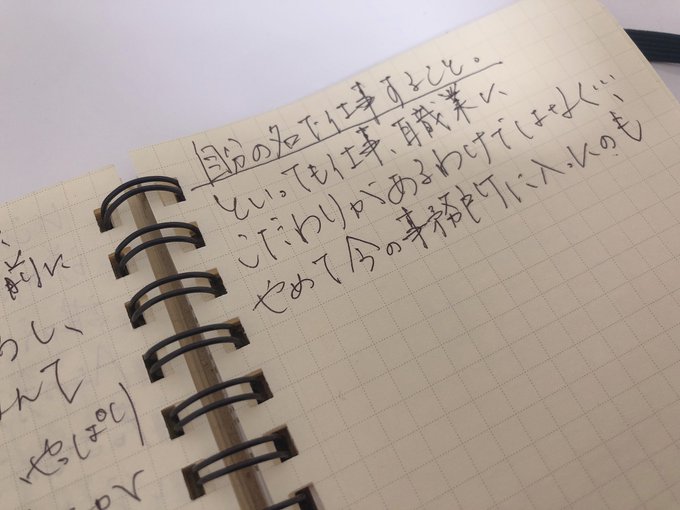 前に
らし、
んて
やっぱり
自分の名で仕事すること。
といっても仕事、職業に
こだわりがあるわけではなく…、
やめて今の事務所に入ったのも